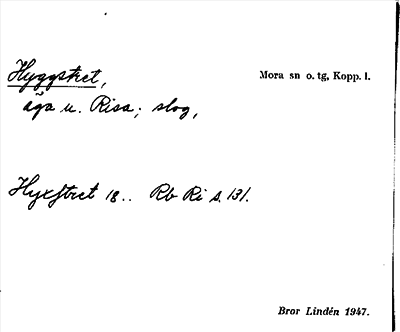 Hyggstret,
Mora sn o. tg, Kopp. l.
äga u. Risa; slog,
Hyxstret 18.. Rb Ri s. 131.
Bror Lindén 1947.